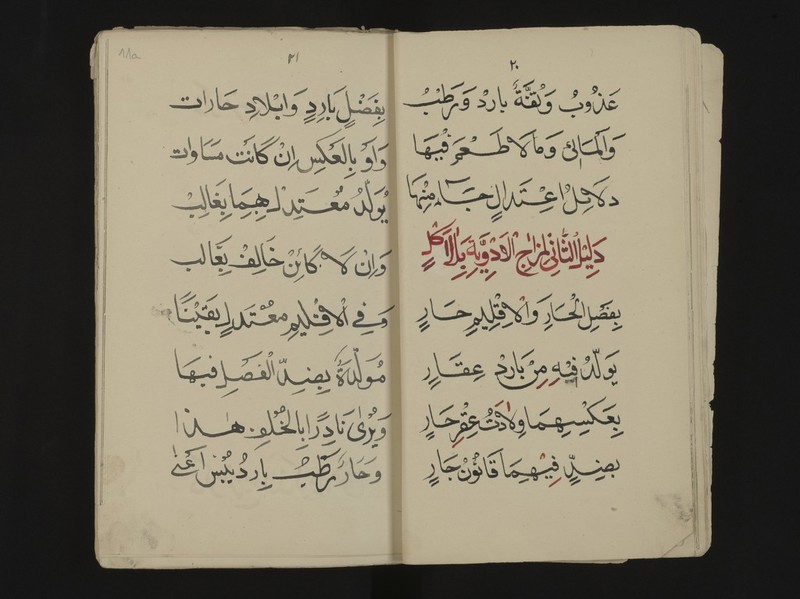 ٢٠
عَذُوبُ وَنْقَنَّةٌ بَارِدْ وَرَطْبُ
وَالْمَائى وَمَا لَا طَعْمَ فِيْهَا
دَلَائِلُ اعْتِدَالٍ جَاءَ مِنْهَا
دَلِيْلُ الثَّانِى لِمِزَاجِ الْاَدْوِيَّةِ بِالْاَكْلِ
بِفَصْلِ الْحَارِ وَالْاِقْلِيمِ حَارٍ
يُوَلَّدُ فِيْهِ مِنْ بَارِدْ عِقَارٍ
بِعَكْسِهِمَا وِلَادَتُ عِقْرِ حَارٍ
بِضِدٍّ فِيْهِمَا قَانُوْنُ جَارٍ
٢١
بِفَصْلٍ بَارِدٍ وَابْلَادِ حَارَات
وَاَوْ بِالْعَكْسِ اِنْ كَانَتْ مَسَاوَات
يُوَلَّدُ مُعْتَدِلْ بِهِمَا بِغَالِبْ
وَاِنْ لَا كَائِنْ خَالِفْ بِغَالِب
وَفِى الْاِقْلِيمِ مُعْتَدِلٍ يَقِيْنًا
مُوَلَّدَةٌ بِضِدِّ الْفَصْلِ فِيهَا
وَيُرٰى نَادِرًا بِالْخُلْفِ هٰذَا
وَحَارٌ رَطْبُ بَارِدُ يُبْسِ اَعْنٰى